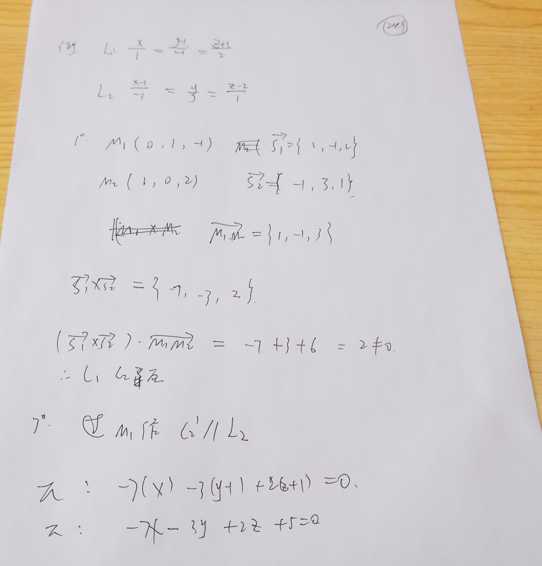 例 L₁ x/1 = (y-1)/-1 = (z+1)/2
L₂ (x-1)/-1 = y/3 = (z-2)/1
1° M₁(0,1,-1) S₁={1,-1,2}
M₂(1,0,2) S₂={-1,3,1}
M₁M₂={1,-1,3}
S₁×S₂={-7,-3,2}
(S₁×S₂)·M₁M₂ = -7+3+6 = 2≠0.
∴ L₁ L₂异面
过 M₁作 L₂'//L₂
π: -7(x) -3(y+1)+2(z+1)=0.
π: -7x-3y+2z+5=0